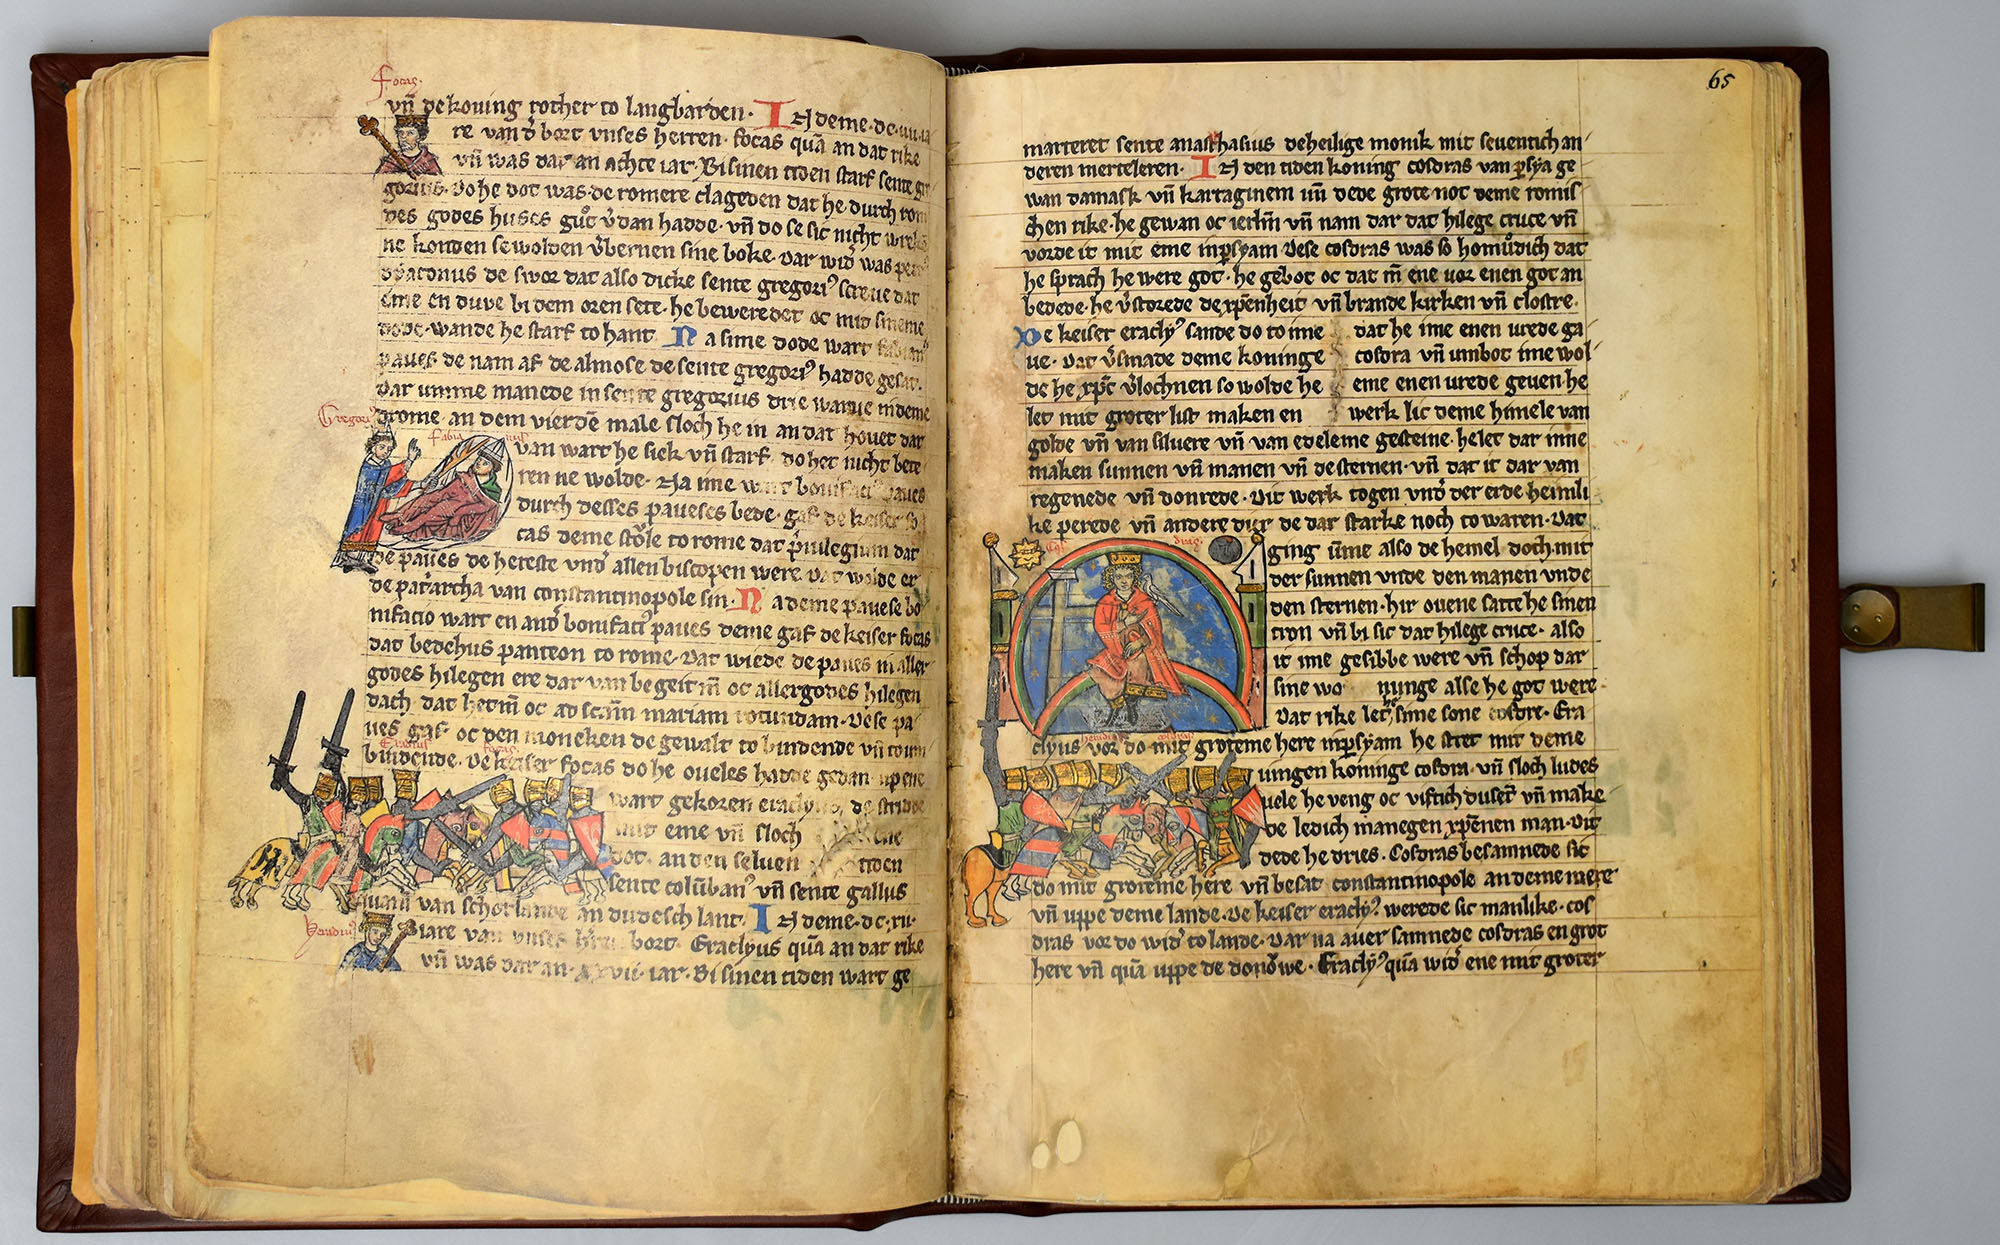 Focas.
vñ de koning rother to langbarden. IN deme. dc. uii. ia
re van d᷒ bort vnses herren. focas quā an dat rike
vñ was dar an achte iar. Bi sinen tiden starf sente gre
gorius. Do he dot was. de romere clageden dat he durch rom
des godes huses gůt v᷒dan hadde. vñ do se sic nicht wreken
ne konden se wolden v᷒bernen sine boke. Dar wid᷒ was petr᷒
dyaconus de swor dat also dicke sente gregori᷒ screue dat
eme en duve bi dem oren sete. he beweredet oc mit sineme
dode. wande he starf to hant. Na sime dode wart fabian᷒
paues de nam af de almose de sente gregori᷒ hadde gesat.
Dar umme manede in sente gregorius drie warue in deme
Gregori᷒
drome. an dem vierdē male sloch he in an dat houet dar
Fabia nus
van wart he siek vñ starf. do het nicht bete
ren ne wolde. Na ime wart bonifaci᷒ paues
durch desses paueses bede. gaf de keiser fo
cas deme stole to rome dat p᷒uilegium dat
de paues de hereste vnd᷒ allen biscopen were. Dat wolde er
de pat᷒archa van constantinopole sin. Na deme pauese bo
nifacio wart en and᷒ bonifaci᷒ paues deme gaf de keiser focas
dat bedehus panteon to rome. Dat wiede de paues in aller
godes hilegen ere dar van begeit m̄ oc allergodes hilegen
dach dat het m̄ oc ad scām mariam rotundam. Dese pa
ues gaf oc den moneken de gewalt to bindende vñ to un
Eraclius focas.
bindende. De keiser focas do he oueles hadde gedan up ene
wart gekoren eraclyus, de stridde
mit eme vñ sloch ene
dot. an den seluen tiden
sente colūban᷒ vñ sente gallus
quam van schotlande an dudesch lant. IN deme. dc. xv.
Heraclius
iare van vnses h᷒ren bort. Eraclyus quā an dat rike
vñ was dar an. xxvii. iar. Bi sinen tiden wart ge
65
marteret sente anasthasius de heilige monik mit seuentich an
deren merteleren. IN den tiden koning cosdras van p᷒sya ge
wan damask vñ kartaginem uñ dede grote not deme romis
chen rike. he gewan oc ierl̄m vñ nam dar dat hilege cruce vñ
vorde it mit eme inp᷒syam Dese cosdras was so homůdich dat
he sprach he were got. he gebot oc dat m̄ ene uor enen got an
bedede. he v᷒storede de xp̄enheit vñ brande kirken vñ clostre.
De keiser eracly᷒ sande do to ime dat he ime enen urede ga
ue. Dat v᷒smade deme koninge cosdra vñ umbot ime wol
de he xp̄c v᷒lochnen so wolde he eme enen urede geuen. he
let mit groter list maken en werk lic deme himele van
golde vñ van siluere vñ van edeleme gesteine. he let dar inne
maken sunnen vñ manen vñ de sternen. vñ dat it dar van
regenede vñ donrede. Dit werk togen vnd᷒ der erde heimli
ke perede vñ andere dier de dar starke noch to waren. Dat
ging ūme also de hemel doch. mit
der sunnen vnde den manen vnde
den sternen. hir ouene satte he sinen
tron vñ bi sic dat hilege cruce. also
it ime gesibbe were vñ schop dar
sine wo nunge alse he got were.
Dat rike let he sime sone cosdre. Era
clyus vor do mit groteme here inp᷒syam he stret mit deme
uingen koninge cosdra. vñ sloch ludes
uele he veng oc viftich duset᷒ vñ make
de ledich manegen xp̄enen man. Dit
dede he dries. Cosdras besamnede sic
do mit groteme here vñ besat constantinopole an deme mere
vñ uppe deme lande. De keiser eracly᷒ werede sic manlike. cos
dras vor do wid᷒ to lande. Dar na auer samnede cosdras en grot
here vñ quā uppe de donowe. Eracly᷒ quā wid᷒ ene mit groter